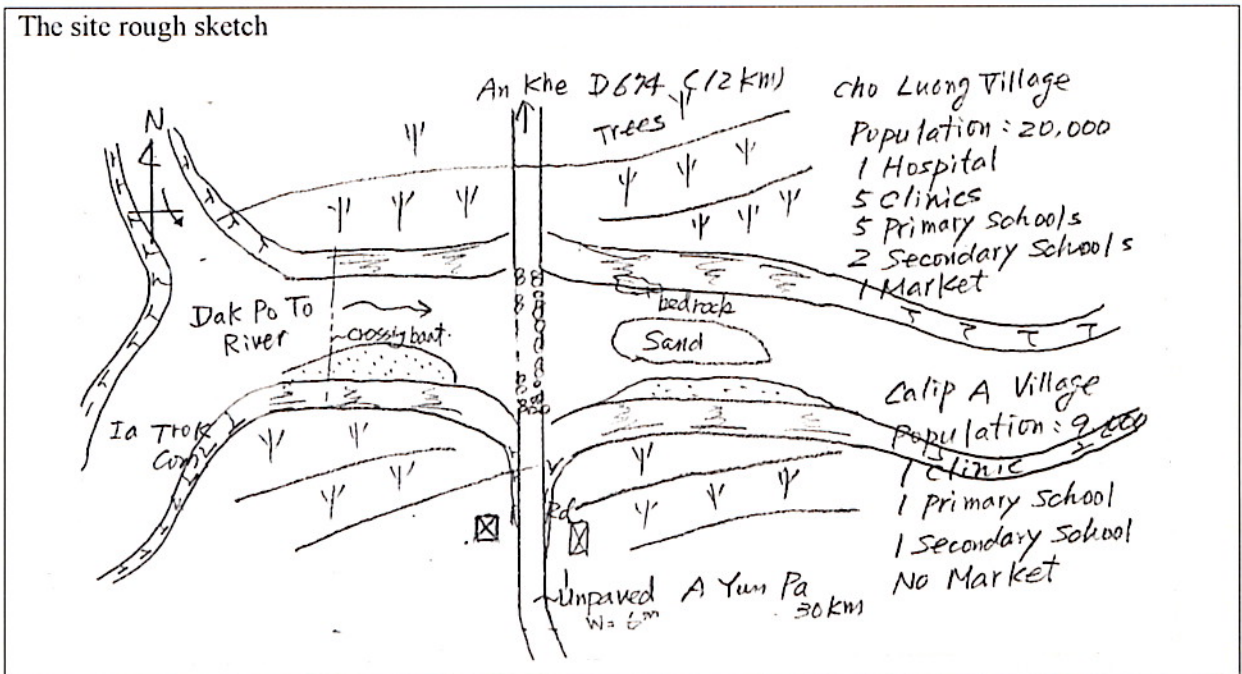 The site rough sketch
An Khe D674 (12 km)
Trees
N
Cho Luong Village
Population : 20,000
1 Hospital
5 Clinics
5 Primary Schools
2 Secondary Schools
1 Market
Dak Po To
River
crossig boat.
bedrock
Sand
Ia Trok
Com
Calip A Village
Population : 9,000
1 Clinic
1 Primary School
1 Secondary School
No Market
Rd
Unpaved
W= 6m
A Yun Pa
30 km